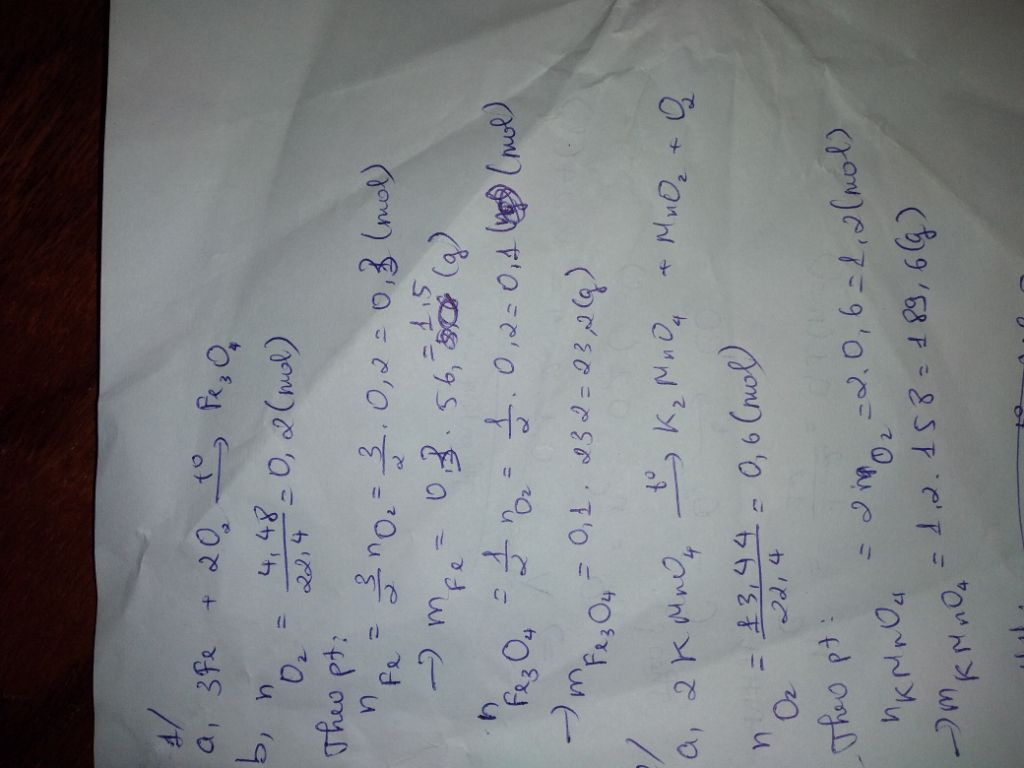 1/
a, 3Fe + 2O₂ —t°→ Fe₃O₄
b, n O₂ = 4,48/22,4 = 0,2 (mol)
Theo pt:
n Fe = 3/2 n O₂ = 3/2 . 0,2 = 0,3 (mol)
→ m Fe = 0,3 . 56, = 1,5 (g)
n Fe₃O₄ = 1/2 n O₂ = 1/2 . 0,2 = 0,1 (mol)
→ m Fe₃O₄ = 0,1 . 232 = 23,2(g)
a, 2KMnO₄ —t°→ K₂MnO₄ + MnO₂ + O₂
n O₂ = 13,44/22,4 = 0,6 (mol)
Theo pt:
n KMnO₄ = 2 n O₂ = 2. 0,6 = 1,2(mol)
→ m KMnO₄ = 1,2. 158 = 189,6(g)